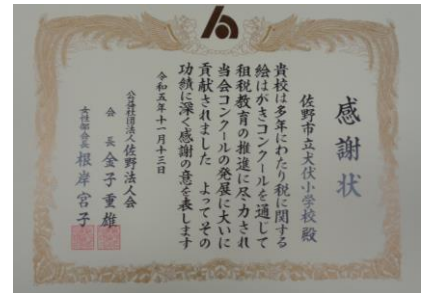 感謝状
佐野市立犬伏小学校殿
貴校は多年にわたり税に関する
絵はがきコンクールを通して
租税教育の推進に尽力され
当会コンクールの発展に大いに
貢献されました よってその
功績に深く感謝の意を表します
令和五年十一月十三日
公益社団法人佐野法人会
会長 金子重雄
女性部会長 根岸宮子